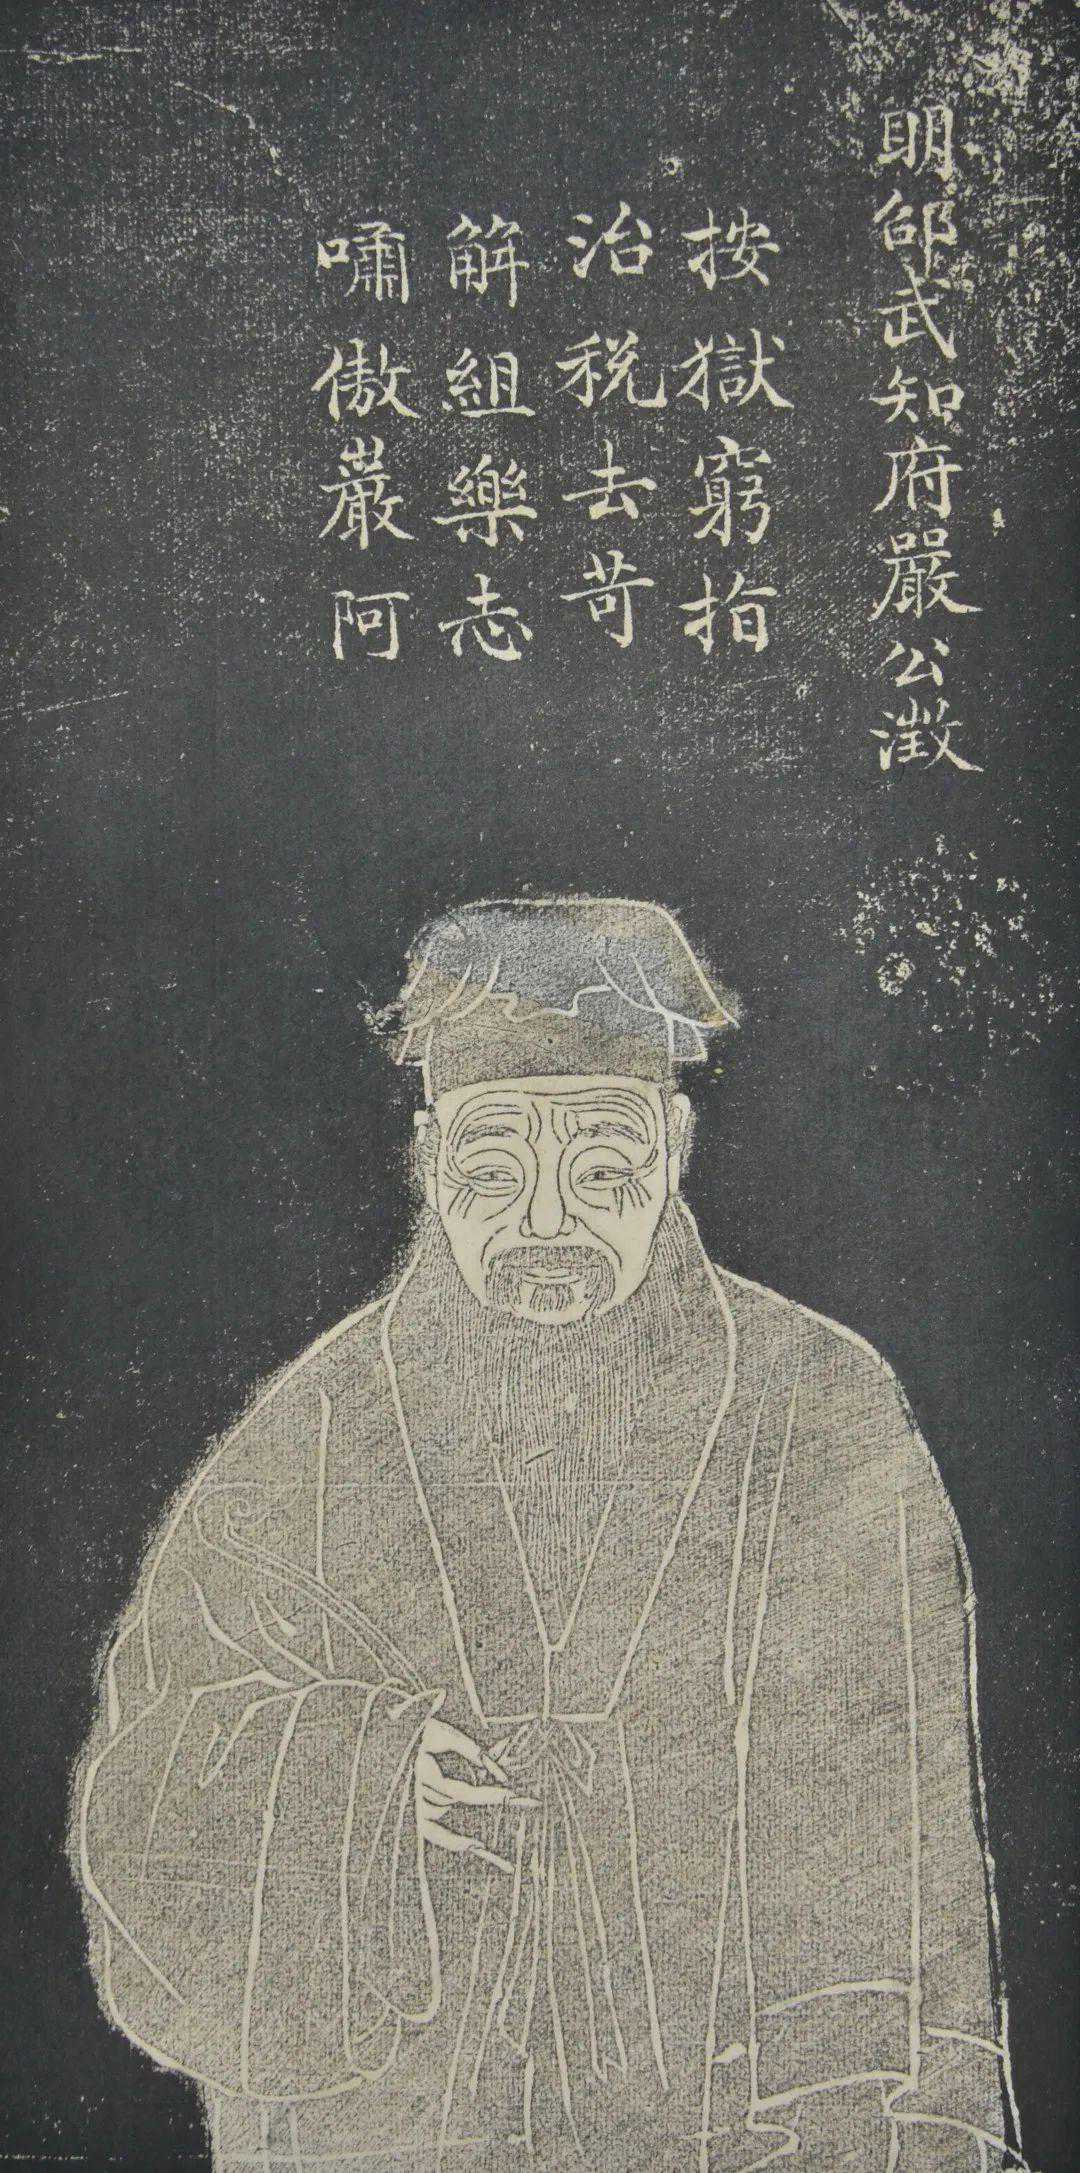 明邵武知府嚴公澂
按獄窮指
治税去苛
解組樂志
嘯傲巖阿